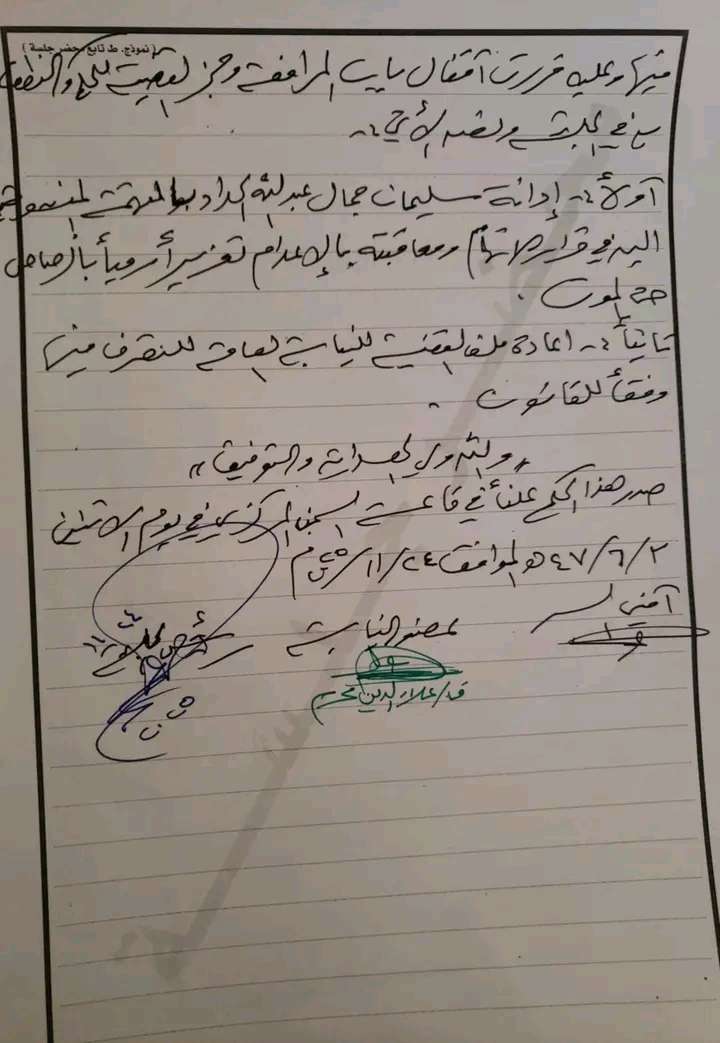 ( نموذج. ط تابع محضر جلسة )
فيها وعليه قررت أقفال باب المرافعة وحجز القضية للحكم والنطق
به في الجلسة ونصه الآتي :-
أولاً :- إدانة سليمان جمال عبدالله الحداد بالتهمة المنسوبة
اليه في قرار الاتهام ومعاقبته بالإعدام تعزيراً رمياً بالرصاص
حتى الموت .
ثانياً :- اعادة ملف القضية للنيابة العامة للتصرف فيها
وفقاً للقانون .
" والله ولي الهداية والتوفيق "
صدر هذا الحكم علناً في قاعة السجن المركزي في يوم الاثنين
٤٧/٦/٣ هـ الموافق ٢٤/١١/ م
أمين السر
عضو النيابة
علاء الدين